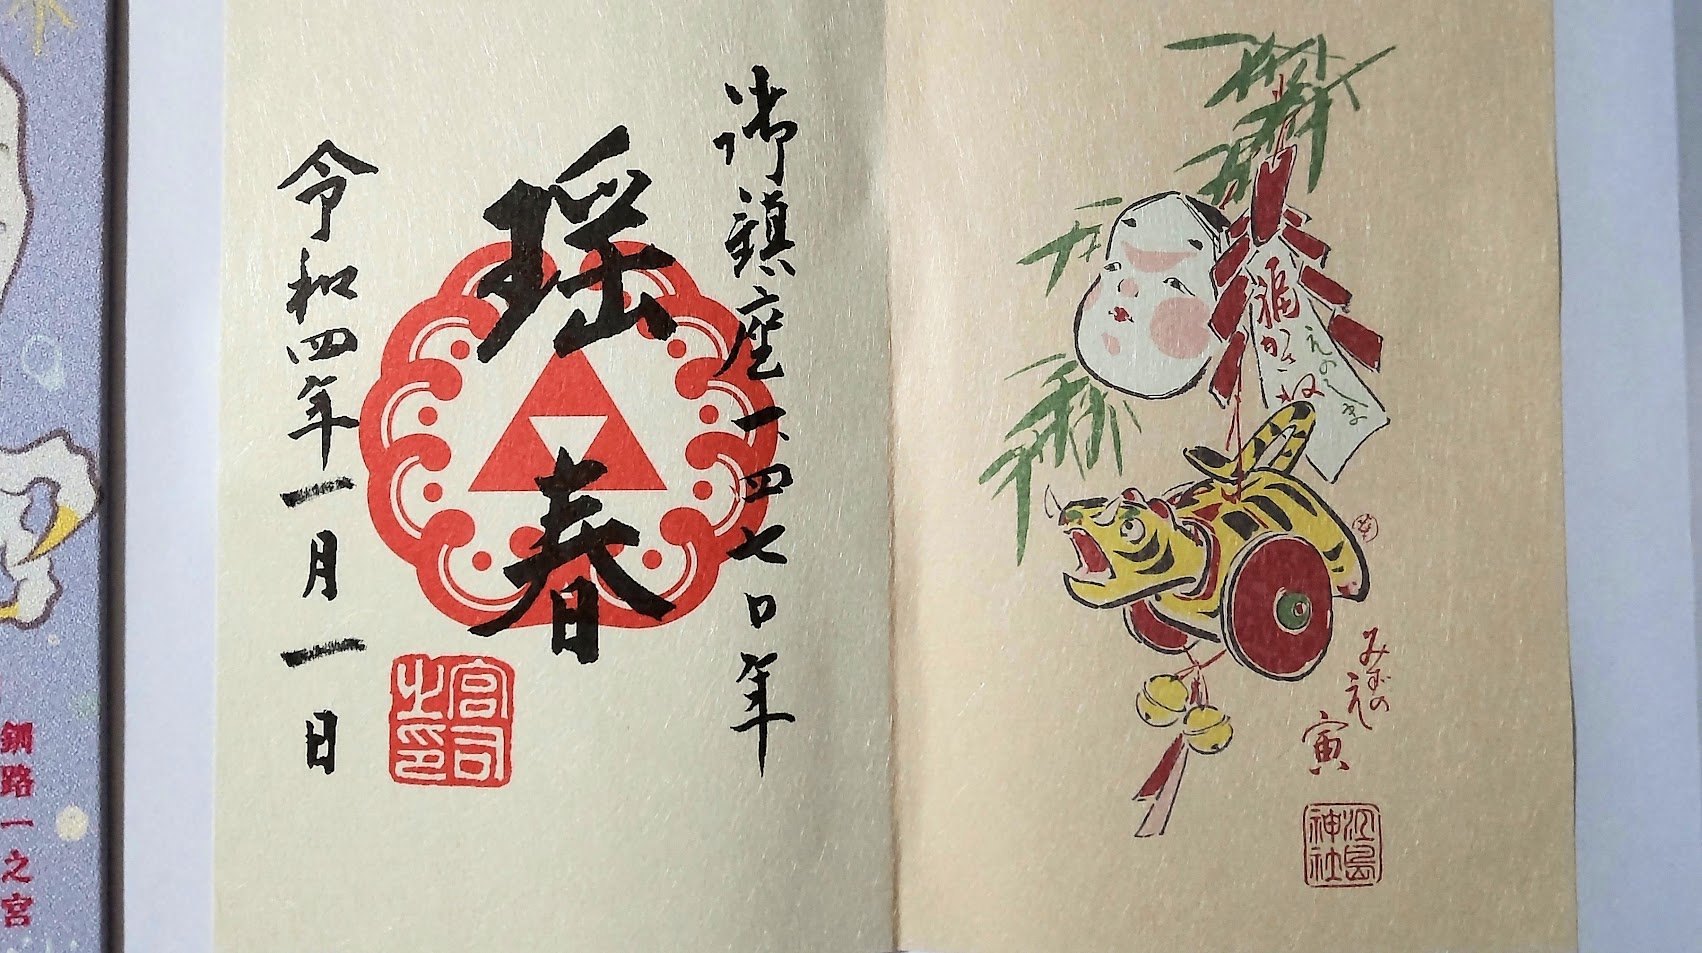 御鎮座一、四七〇年
瑶春
令和四年一月一日
宮司之印
福かさね
えのしま
みずのえ
寅
江島神社
釧路一之宮